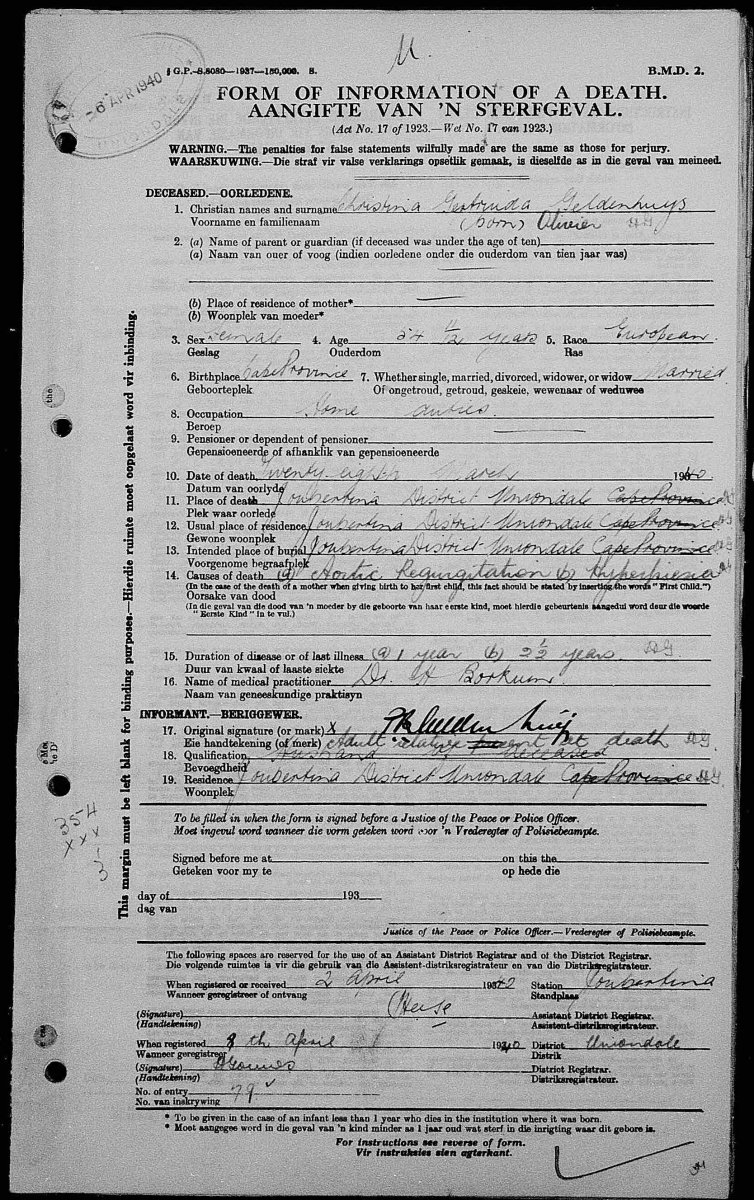 U.
G.P.-S.8080—1937—150,000. S.
B.M.D. 2.
6 APR 1940
FORM OF INFORMATION OF A DEATH.
AANGIFTE VAN 'N STERFGEVAL.
(Act No. 17 of 1923.—Wet No. 17 van 1923.)
WARNING.—The penalties for false statements wilfully made are the same as those for perjury.
WAARSKUWING.—Die straf vir valse verklarings opsetlik gemaak, is dieselfde as in die geval van meineed.
DECEASED.—OORLEDENE.
1. Christian names and surname Christina Gertruida Geldenhuys
Voorname en familienaam (born) Olivier
2. (a) Name of parent or guardian (if deceased was under the age of ten)
(a) Naam van ouer of voog (indien oorledene onder die ouderdom van tien jaar was)
(b) Place of residence of mother*
(b) Woonplek van moeder*
3. Sex Female 4. Age 54 11/12 years 5. Race European
Geslag Ouderdom Ras
6. Birthplace Cape Province 7. Whether single, married, divorced, widower, or widow Married
Geboorteplek Of ongetroud, getroud, geskeie, wewenaar of weduwee
8. Occupation Home duties.
Beroep
9. Pensioner or dependent of pensioner
Gepensioeneerde of afhanklik van gepensioeneerde
10. Date of death Twenty-eighth March 1940.
Datum van oorlyde
11. Place of death Joubertina District Uniondale Cape Province
Plek waar oorlede
12. Usual place of residence Joubertina District Uniondale Cape Province
Gewone woonplek
13. Intended place of burial Joubertina District Uniondale Cape Province
Voorgenome begraafplek
14. Causes of death (a) Aortic Regurgitation (b) Hyperpiesia
(In the case of the death of a mother when giving birth to her first child, this fact should be stated by inserting the words "First Child.")
Oorsake van dood
(In die geval van die dood van 'n moeder by die geboorte van haar eerste kind, moet hierdie gebeurtenis aangedui word deur die woorde
"Eerste Kind" in te vul.)
15. Duration of disease or of last illness (a) 1 year (b) 2 1/2 years.
Duur van kwaal of laaste siekte
16. Name of medical practitioner Dr. H Borkum.
Naam van geneeskundige praktisyn
INFORMANT.—BERIGGEWER.
17. Original signature (or mark) X
Eie handtekening (of merk) Adult relative present at death
18. Qualification Husband of deceased
Bevoegdheid
19. Residence Joubertina District Uniondale Cape Province
Woonplek
To be filled in when the form is signed before a Justice of the Peace or Police Officer.
Moet ingevul word wanneer die vorm geteken word voor 'n Vrederegter of Polisiebeampte.
Signed before me at on this the
Geteken voor my te op hede die
day of 193
dag van
Justice of the Peace or Police Officer.—Vrederegter of Polisiebeampte.
The following spaces are reserved for the use of an Assistant District Registrar and of the District Registrar.
Die volgende ruimtes is vir die gebruik van die Assistent-distriksregistrateur en van die Distriksregistrateur.
When registered or received 2 April 1940 Station Joubertina
Wanneer geregistreer of ontvang Standplaas
(Signature) Assistant District Registrar.
(Handtekening) Assistent-distriksregistrateur.
When registered 8th April 1940 District Uniondale
Wanneer geregistreer Distrik
(Signature) District Registrar.
(Handtekening) Distriksregistrateur.
No. of entry 79
No. van inskrywing
* To be given in the case of an infant less than 1 year who dies in the institution where it was born.
* Moet aangegee word in die geval van 'n kind minder as 1 jaar oud wat sterf in die inrigting waar dit gebore is.
For instructions see reverse of form.
Vir instruksies sien agterkant.
This margin must be left blank for binding purposes.—Hierdie ruimte moet oopgelaat word vir inbinding.
35-4
x x x
3